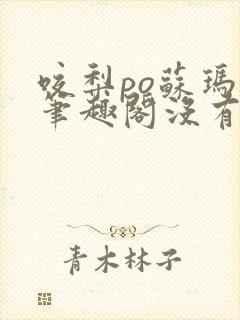 咬梨po蘇瑪
筆趣閣沒有
青木林子